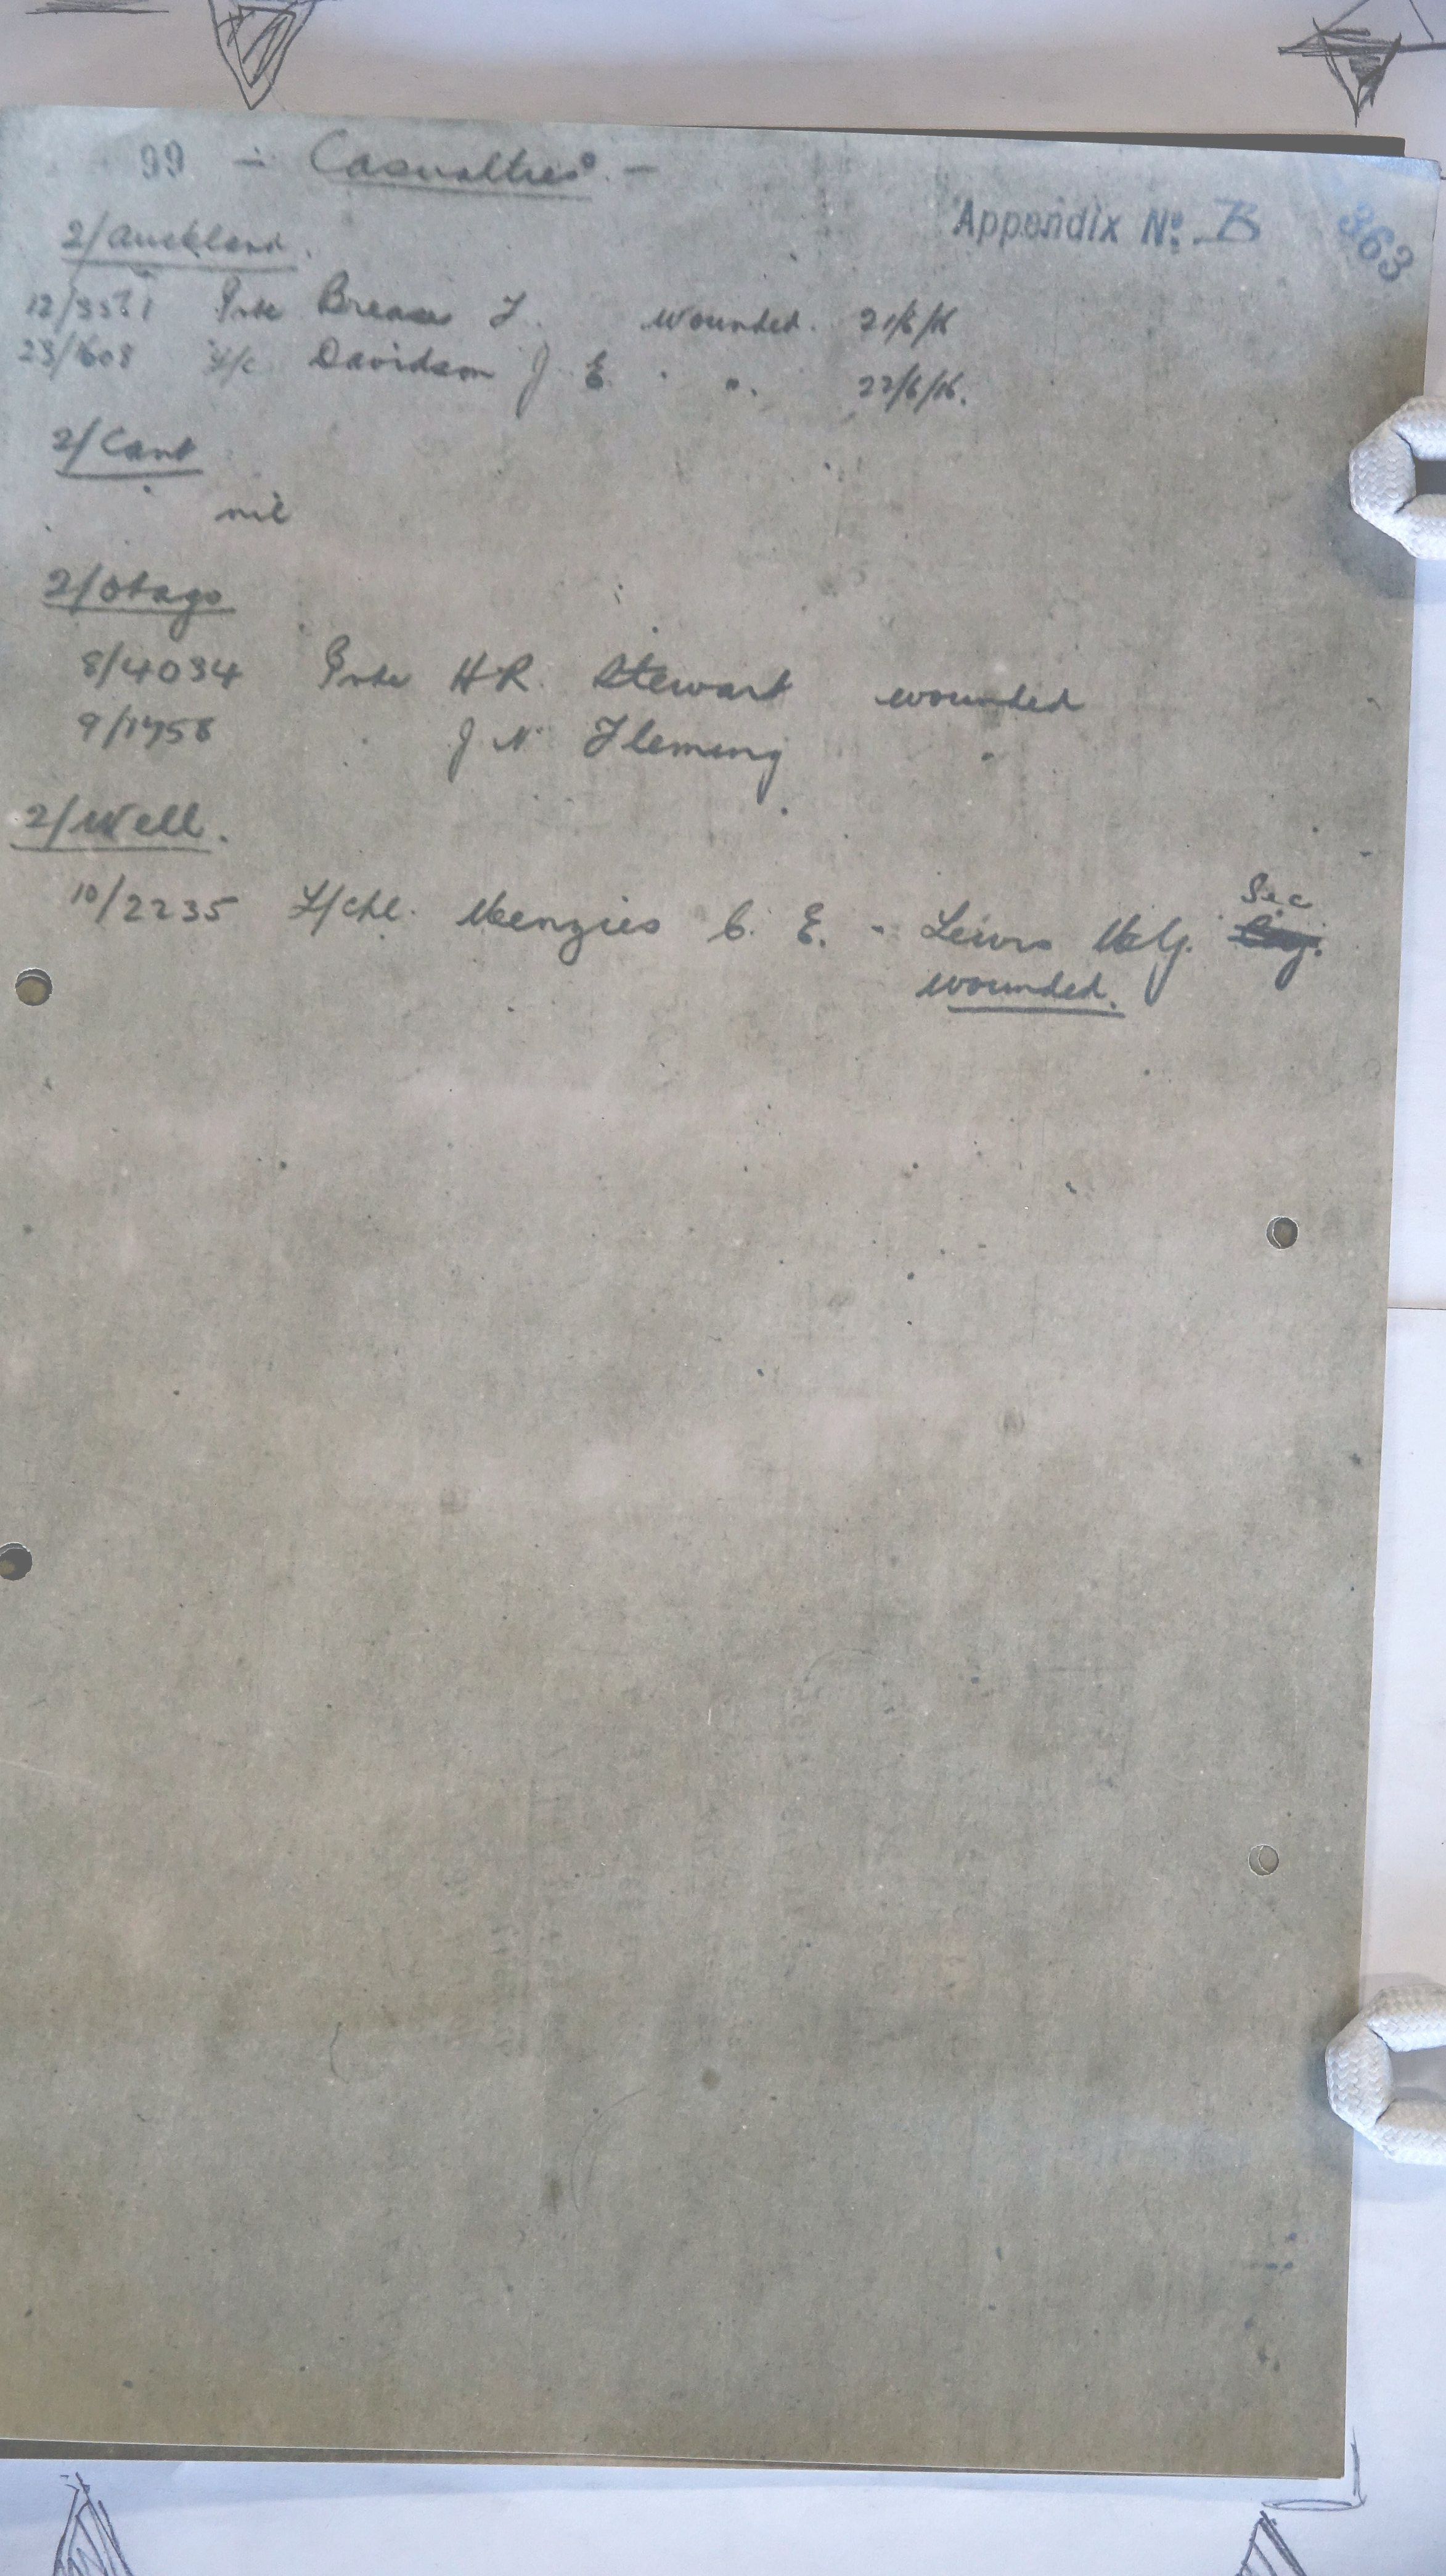 99 - Casualties. -
Appendix No. B 363
2/Auckland.
Pte J. wounded. 21/6/16
23/1608 L/c Davidson J E. " 22/6/16.
2/Cant
nil
2/Otago
8/4034 Pvte H R. Stewart wounded
9/1758 J N. Fleming "
2/Well.
10/2235 L/Cpl. Menzies C. E. - Lewis M.G. Sec
wounded.